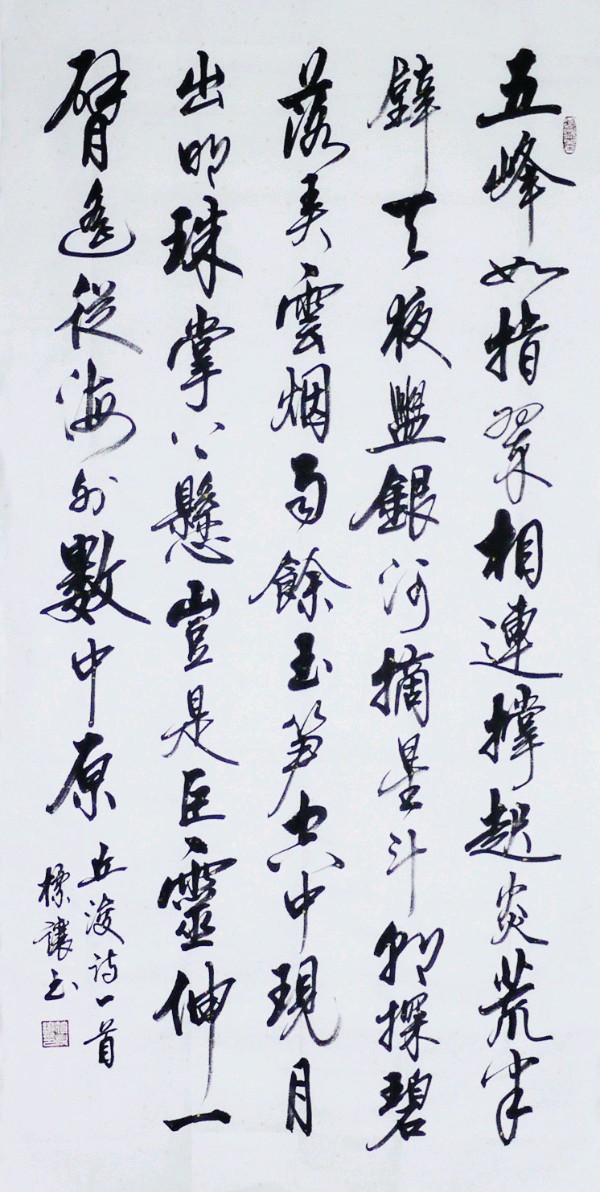 五峰如指翠相連撐起炎荒半
壁天夜盥銀河摘星斗朝探碧
落弄雲烟雨餘玉笋空中現月
出明珠掌上懸豈是巨靈伸一
臂遙從海外數中原
丘浚诗一首
標讓书